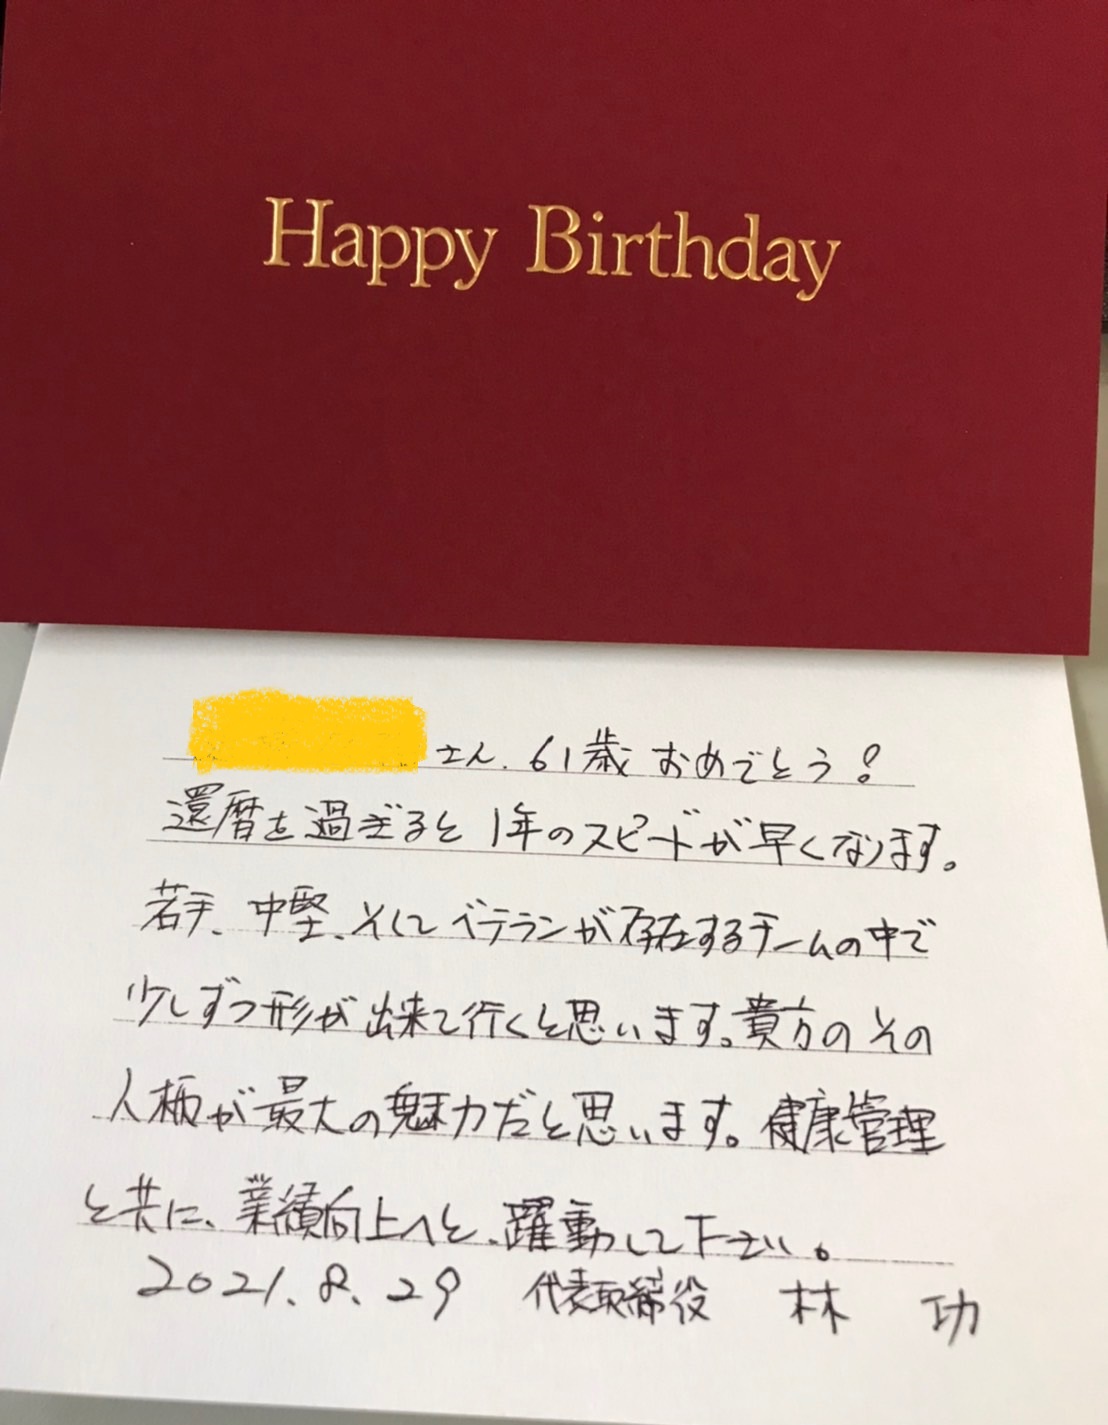 Happy Birthday
さん、61歳 おめでとう!
還暦を過ぎると 1年のスピードが早くなります。
若手、中堅、そしてベテランが存在するチームの中で
少しずつ形が出来て行くと思います。貴方のその
人柄が最大の魅力だと思います。健康管理
と共に、業績向上へと、躍動して下さい。
2021.8.29 代表取締役 林 功